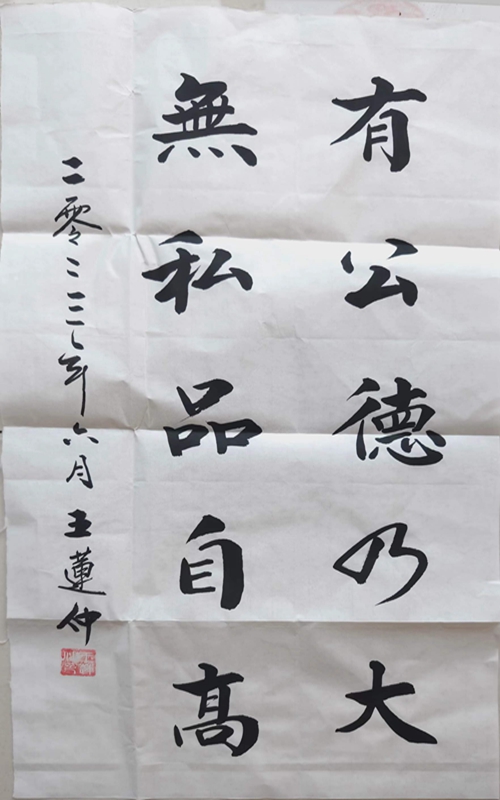 有公德乃大
無私品自高
二零二三年六月王蓮仲